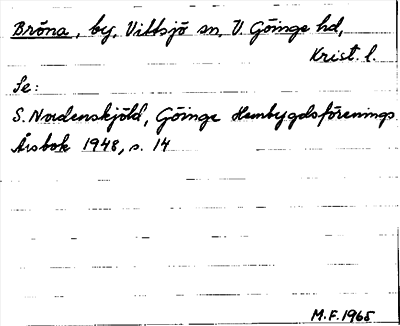 Bröna, by, Vittsjö sn, V. Göinge hd,
Krist. l.
Se:
S. Nordenskjöld, Göinge Hembygdsförenings
Årsbok 1948, s. 14
M.F. 1965